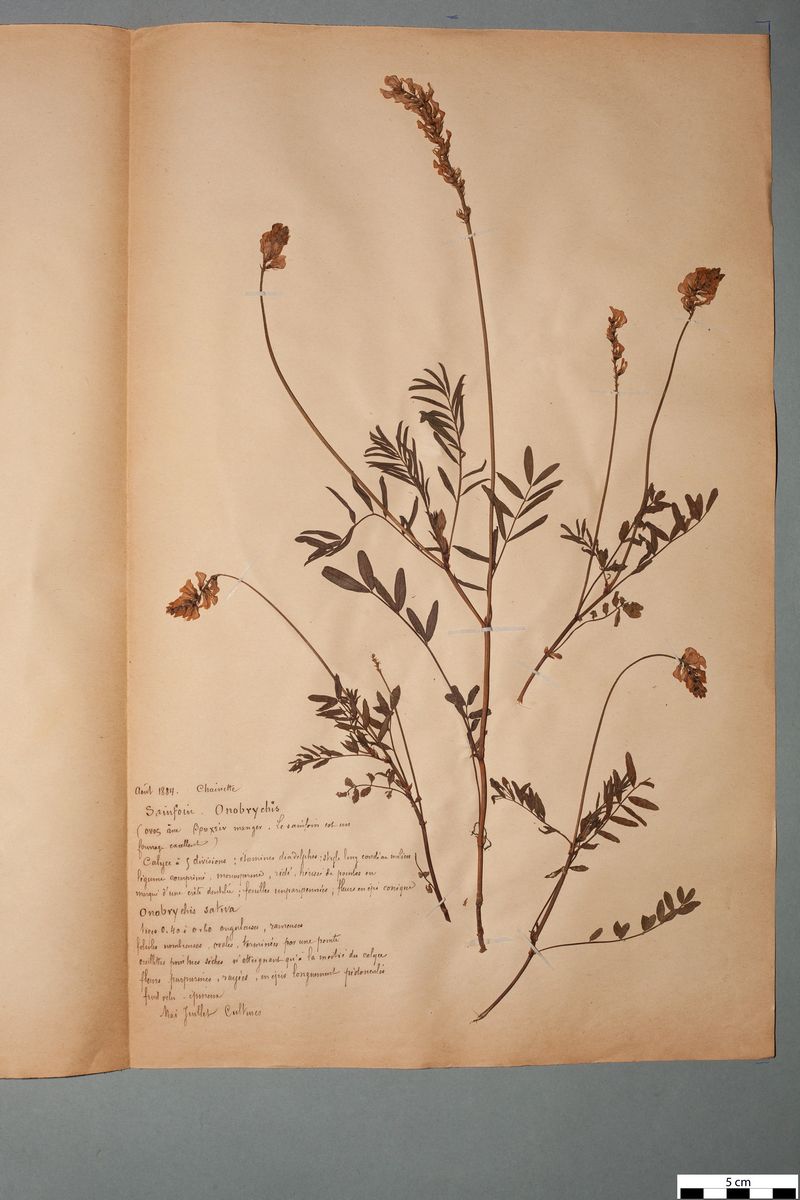 Août 1884. Chainette
Sainfoin. Onobrychis
(ονος âne βρυχειν manger. Le sainfoin est un
fourrage excellent)
Calyce à 5 divisions; étamines diadelphes; style long coudé au milieu
légume comprimé, monosperme, ridé, hérissé de pointes ou
marqué d'une crête dentelée; feuilles imparipennées, fleurs en épi conique
Onobrychis sativa
tiges 0.40 à 0.60 anguleuses, rameuses
folioles nombreuses, ovales, terminées par une pointe
n'atteignant qu'à la moitié du calyce
fleurs purpurines, rayées, en épis longuement pédonculés
fruit velu - épineux
Mai Juillet Cultures
5 cm